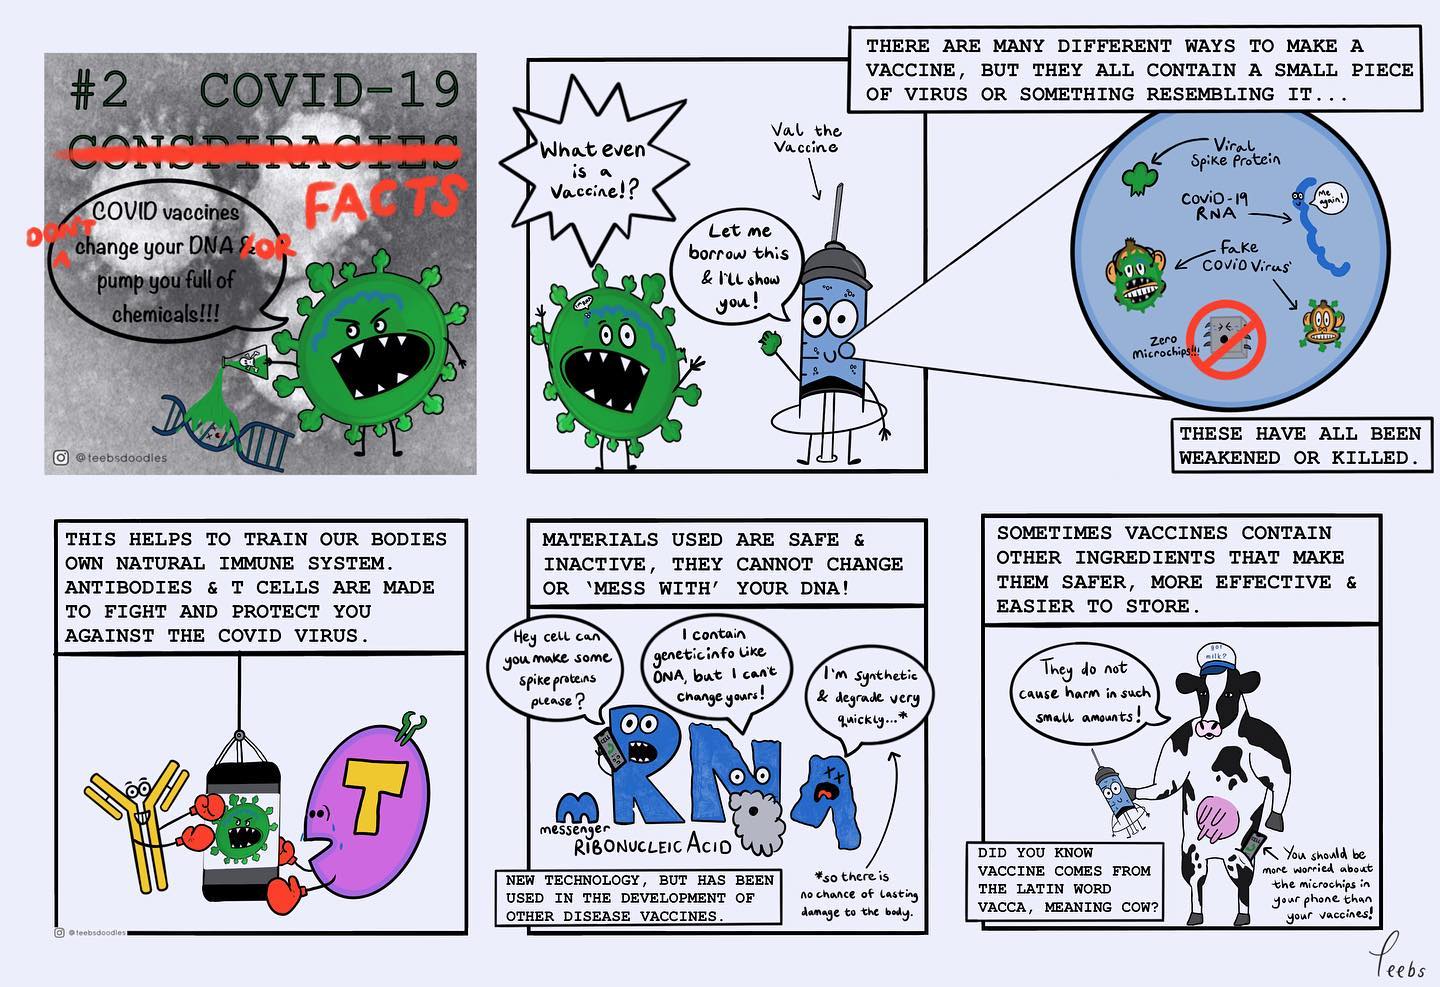 #2 COVID-19
CONSPIRACIES
FACTS
COVID vaccines
DON'T
change your DNA & /OR
A
pump you full of
chemicals!!!
@teebsdoodles
What even
is a
Vaccine!?
Val the
Vaccine
Let me
borrow this
& I'll show
you!
THERE ARE MANY DIFFERENT WAYS TO MAKE A
VACCINE, BUT THEY ALL CONTAIN A SMALL PIECE
OF VIRUS OR SOMETHING RESEMBLING IT...
Viral
Spike Protein
COViD-19
RNA
Me
again!
Fake
COViD Virus'
Zero
Microchips!!!
THESE HAVE ALL BEEN
WEAKENED OR KILLED.
THIS HELPS TO TRAIN OUR BODIES
OWN NATURAL IMMUNE SYSTEM.
ANTIBODIES & T CELLS ARE MADE
TO FIGHT AND PROTECT YOU
AGAINST THE COVID VIRUS.
T
@teebsdoodles
MATERIALS USED ARE SAFE &
INACTIVE, THEY CANNOT CHANGE
OR 'MESS WITH' YOUR DNA!
Hey cell can
you make some
spike proteins
please?
I contain
genetic info like
DNA, but I can't
change yours!
I'm synthetic
& degrade very
quickly...*
mRNA
messenger
RIBONUCLEIC ACID
NEW TECHNOLOGY, BUT HAS BEEN
USED IN THE DEVELOPMENT OF
OTHER DISEASE VACCINES.
*so there is
no chance of lasting
damage to the body.
SOMETIMES VACCINES CONTAIN
OTHER INGREDIENTS THAT MAKE
THEM SAFER, MORE EFFECTIVE &
EASIER TO STORE.
They do not
cause harm in such
small amounts!
got
milk?
DID YOU KNOW
VACCINE COMES FROM
THE LATIN WORD
VACCA, MEANING COW?
You should be
more worried about
the microchips in
your phone than
your vaccines!
Teebs